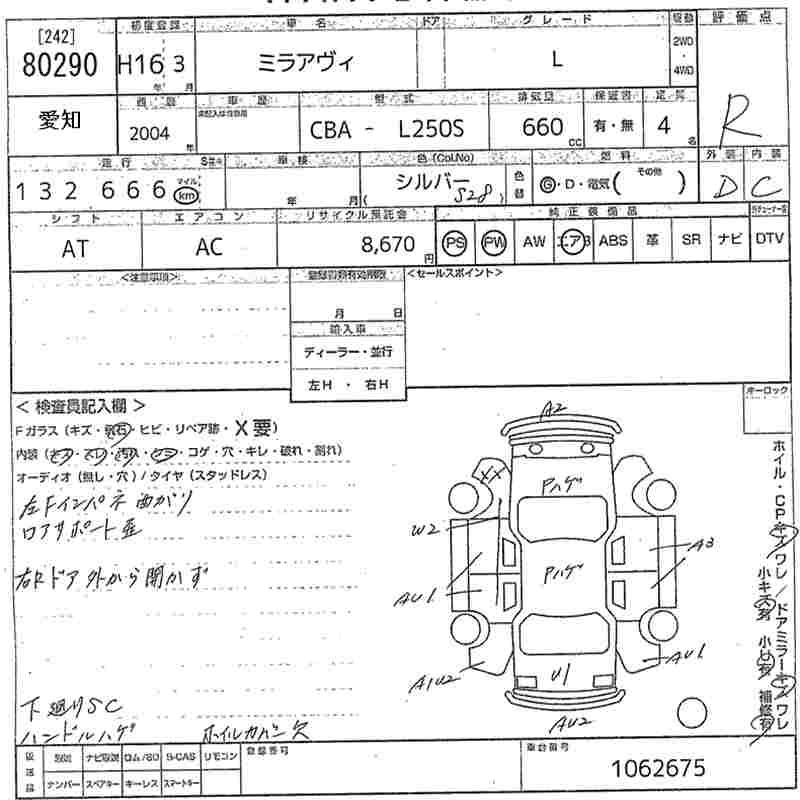 [242]
80290
初度登録
H16 3
年 月
車名
ミラアヴィ
ドア
グレード
L
駆動
2WD
・
4WD
評価点
R
愛知
2004
年
車歴
型式
CBA - L250S
排気量
660
cc
保証書
有・無
定員
4
名
外装
D
内装
C
走行
132,666
マイル
km
車検
年 月
色(Col.No)
シルバー
S28
色替
燃料
G・D・電気( その他 )
シフト
AT
エアコン
AC
リサイクル預託金
8,670
円
純正装備品
PS PW AW エアB ABS 革 SR ナビ DTV
<注意事項>
登録書類有効期限
月 日
輸入車
ディーラー・並行
左H ・ 右H
<セールスポイント>
キーロック
<検査員記入欄>
Fガラス(キズ・飛石・ヒビ・リペア跡・X要)
内装(キズ・スレ・汚れ・シミ・コゲ・穴・キレ・破れ・割れ)
オーディオ(無し・穴)/タイヤ(スタッドレス)
左Fインパネ 曲がり
ロアサポート歪
右Rドア外から開かず
下廻りSC
ハンドルハゲ
ホイルカバー欠
A2
XX
Pハゲ
W2
A3
Pハゲ
AU1
AU1
A1U2
U1
AU2
ホイル・CPキズワレ/ドアミラーキズワレ
小キズ有 小凹有 補修有
後送品
取説 ナビ取説 ロム/SD B-CAS リモコン
ナンバー スペアキー キーレス スマートキー
登録番号
車台番号
1062675